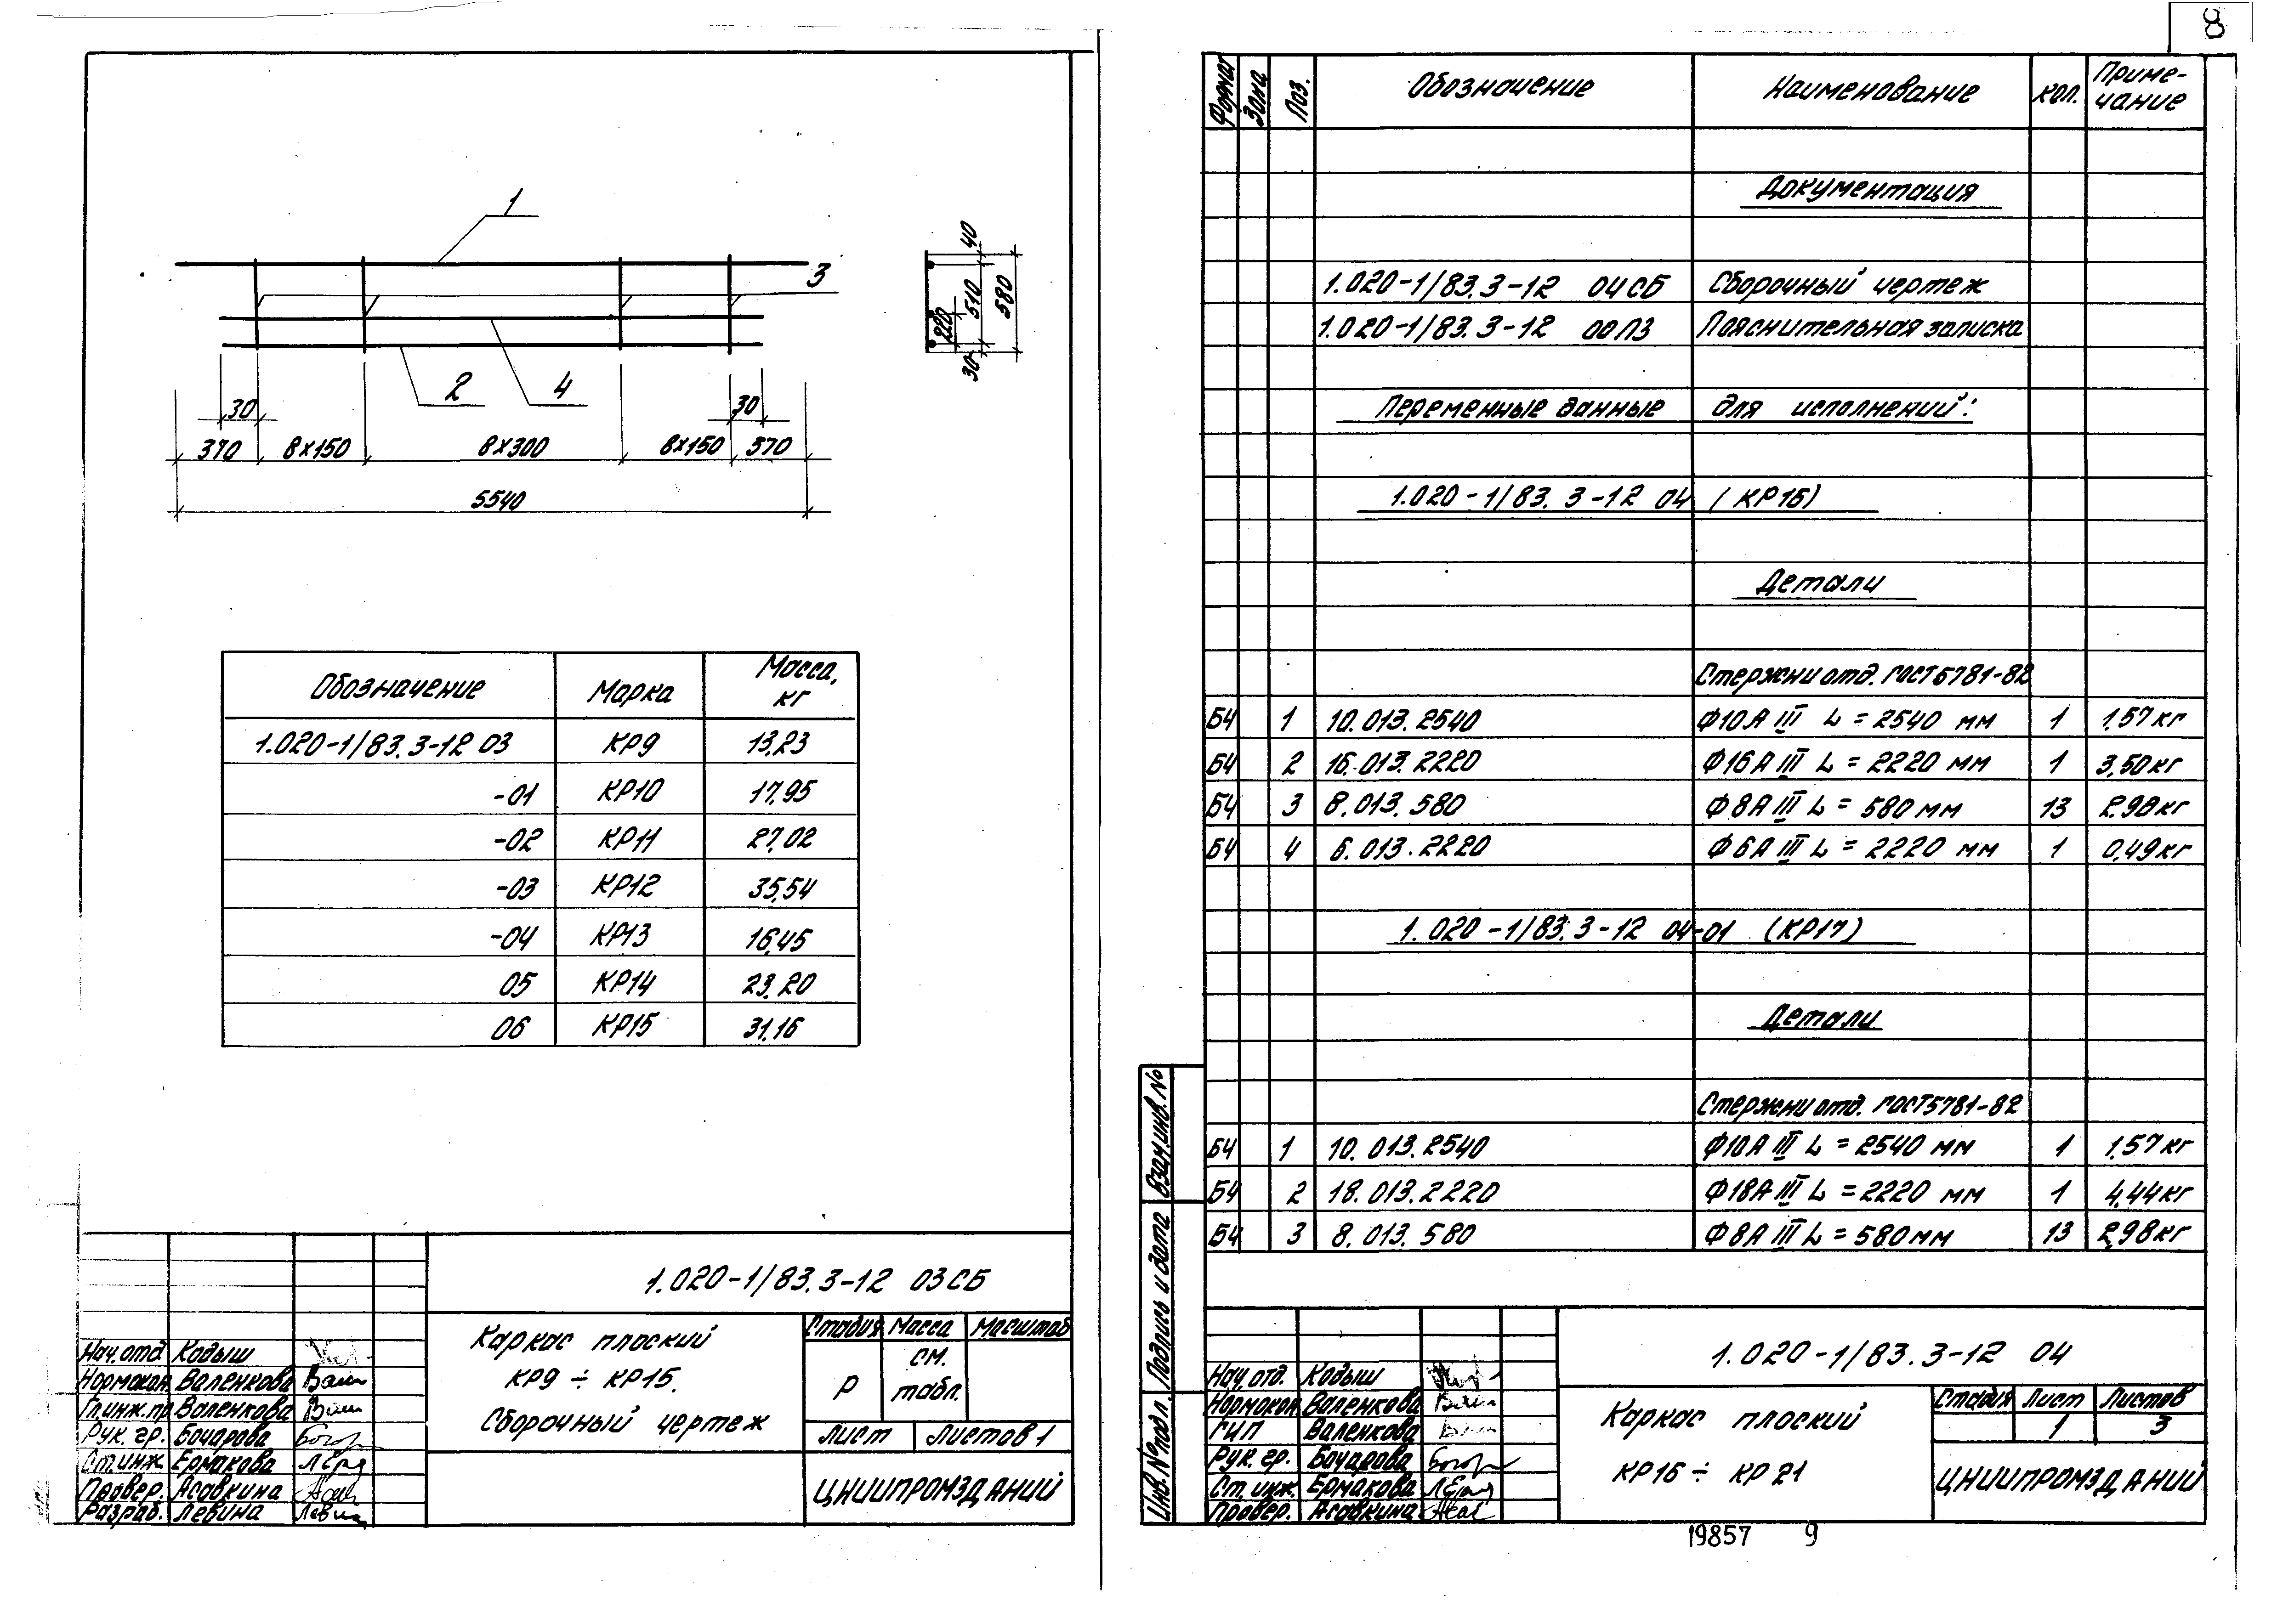 8
1
3
2
4
30
30
370
8×150
8×300
8×150
370
5540
40
510
580
220
30
Обозначение
Марка
Масса, кг
1.020-1/83.3-12 03
КР9
13,23
-01
КР10
17,95
-02
КР11
27,02
-03
КР12
35,54
-04
КР13
16,45
05
КР14
23,20
06
КР15
31,16
1.020-1/83.3-12 03СБ
Каркас плоский
КР9 ÷ КР15.
Сборочный чертеж
Стадия
Масса
Масштаб
Р
см. табл.
Лист
Листов 1
ЦНИИПРОМЗДАНИЙ
Нач.отд
Кодыш
Нормокон.
Валенкова
Гл.инж.пр
Валенкова
Рук. гр.
Бочарова
Ст.инж.
Ермакова
Провер.
Асавкина
Разраб.
Левина
Формат
Зона
Поз.
Обозначение
Наименование
Кол.
Приме-
чание
Документация
1.020-1/83.3-12 04СБ
Сборочный чертеж
1.020-1/83.3-12 00ПЗ
Пояснительная записка
Переменные данные для исполнений:
1.020-1/83.3-12 04 (КР16)
Детали
Стержни отд. ГОСТ5781-82
Б4 1 10.013.2540 Ф10АIII L=2540 мм 1 1,57кг
Б4 2 16.013.2220 Ф16АIII L=2220 мм 1 3,50кг
Б4 3 8.013.580 Ф8АIII L=580мм 13 2,98кг
Б4 4 6.013.2220 Ф6АIII L=2220 мм 1 0,49кг
1.020-1/83.3-12 04-01 (КР17)
Детали
Стержни отд. ГОСТ5781-82
Б4 1 10.013.2540 Ф10АIII L=2540 мм 1 1,57кг
Б4 2 18.013.2220 Ф18АIII L=2220 мм 1 4,44кг
Б4 3 8.013.580 Ф8АIII L=580мм 13 2,98кг
Взам.инв.№
Подпись и дата
Инв.№подл.
1.020-1/83.3-12 04
Каркас плоский
КР16 ÷ КР21
Стадия
Лист
Листов
1
3
ЦНИИПРОМЗДАНИЙ
Нач.отд.
Кодыш
Нормокон.
Валенкова
ГИП
Валенкова
Рук. гр.
Бочарова
Ст. инж.
Ермакова
Провер.
Асавкина
19857 9